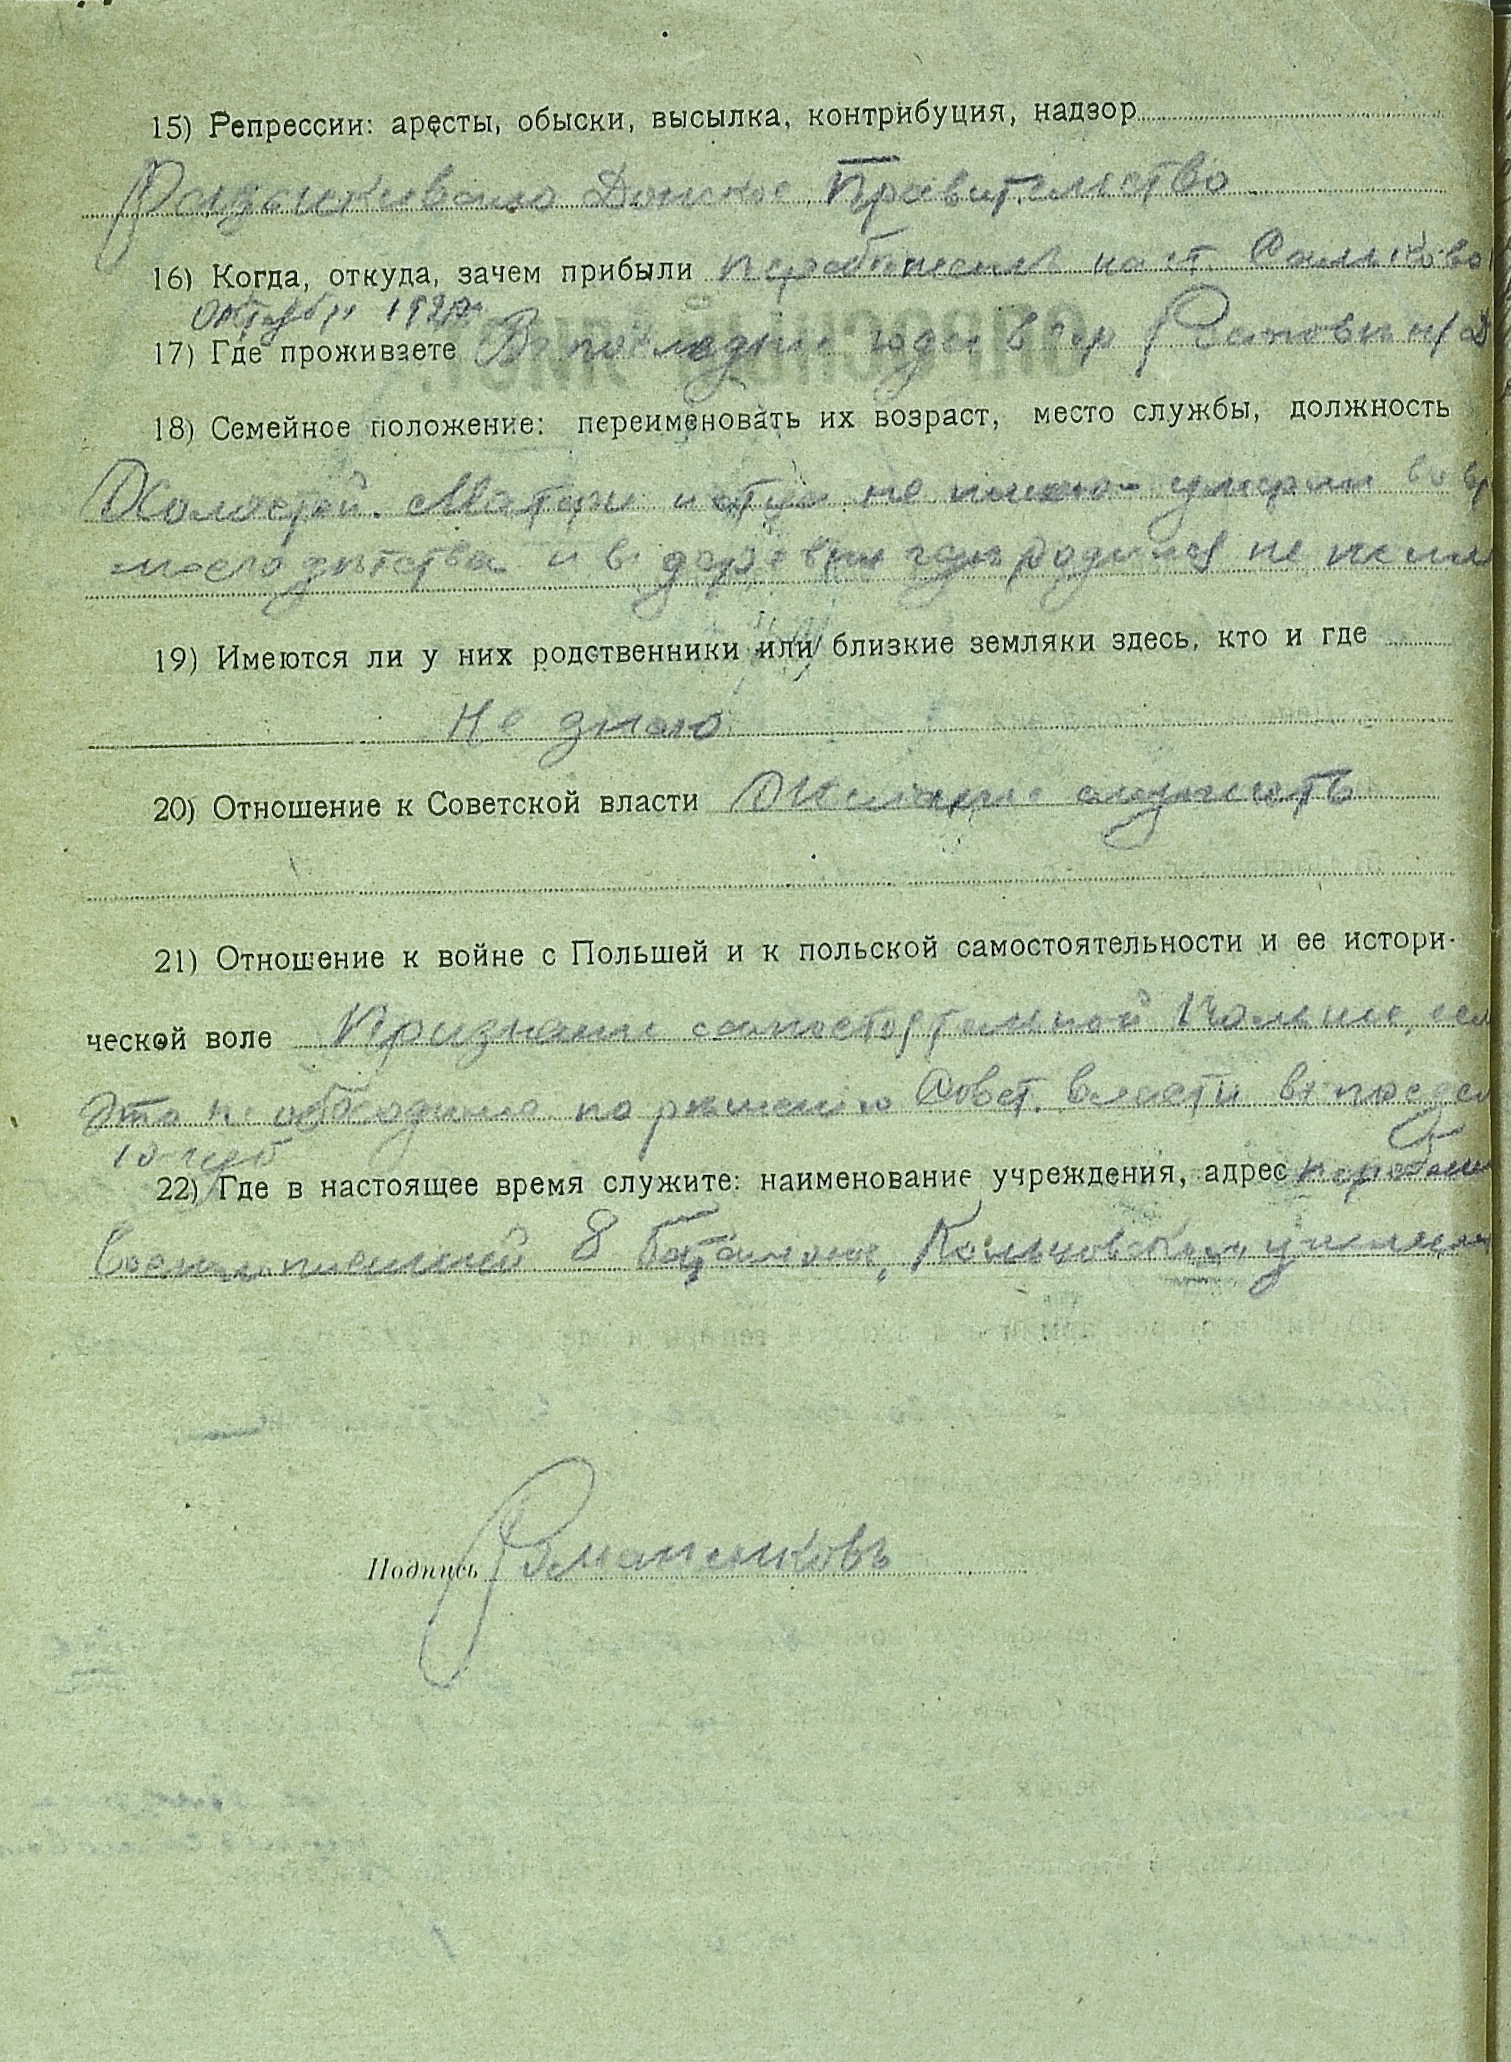 15) Репрессии: аресты, обыски, высылка, контрибуция, надзор
Разыскивало Донское Правительство
16) Когда, откуда, зачем прибыли на ст. Сальково
Октябрь 192
17) Где проживаете В последние годы в гор Ростовы н/Д
18) Семейное положение: переименовать их возраст, место службы, должность
Холостой. Матери и отца не имею - умерли во вр
моего дѣтства и в деревни гдѣ родился не
19) Имеются ли у них родственники или близкие земляки здесь, кто и где
Не знаю
20) Отношение к Советской власти Желание служить
21) Отношение к войне с Польшей и к польской самостоятельности и ее истори-
ческой воле Признание самостоятельной Польши, если
Это необходимо по решению Совет. власти в предел
10 губ
22) Где в настоящее время служите: наименование учреждения, адрес
8 баталиона,
Подпись Романенковъ